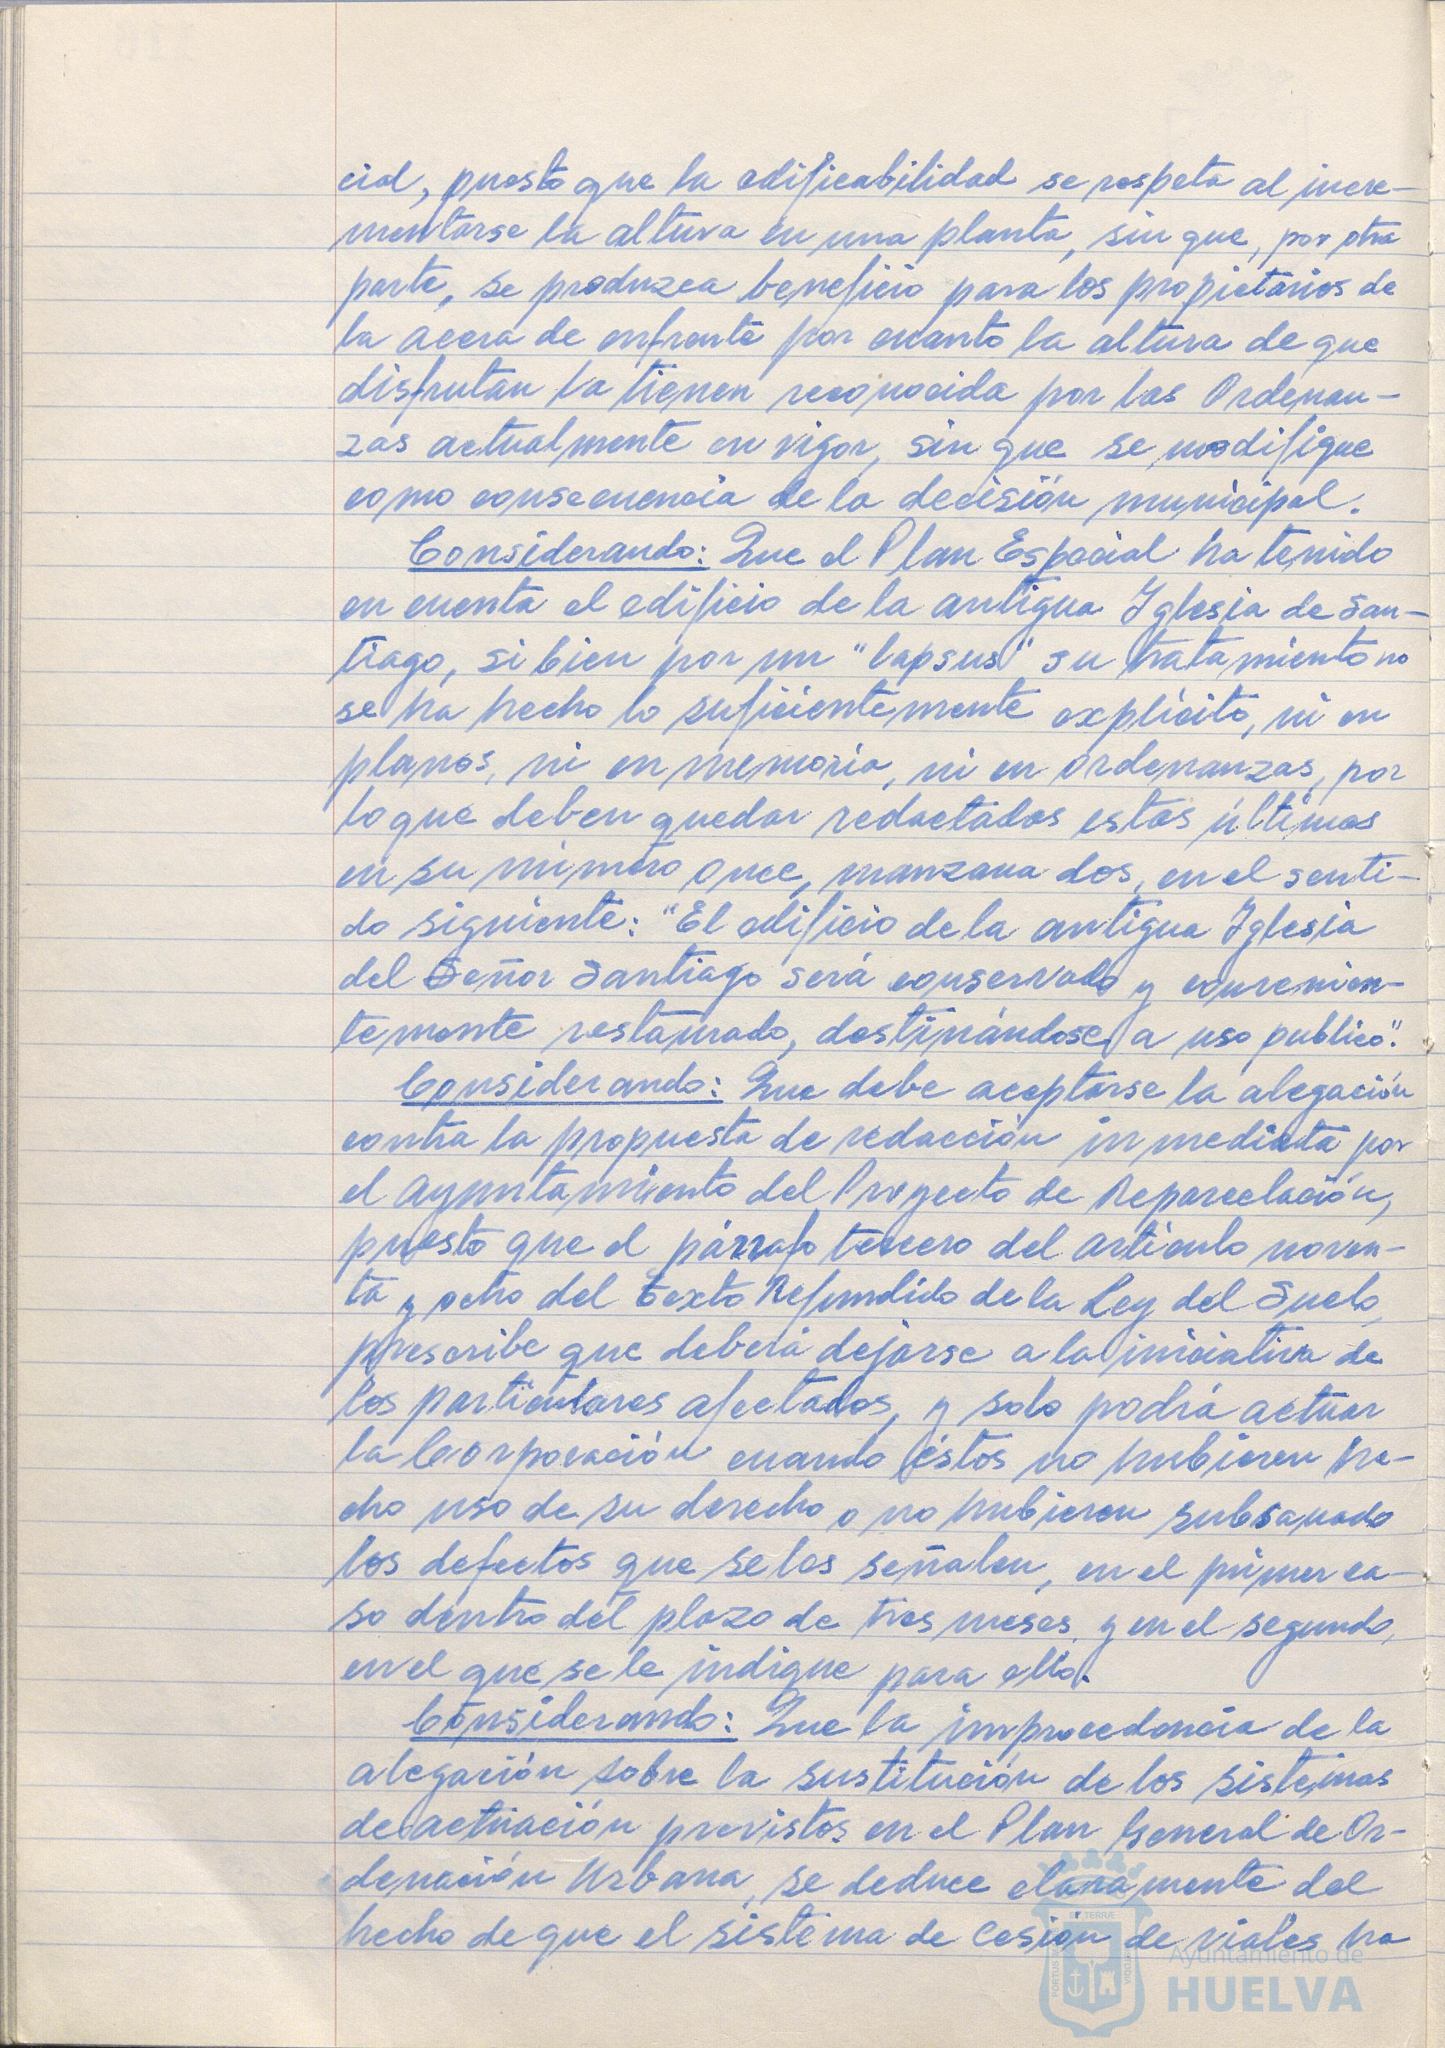 cial, puesto que la edificabilidad se respeta al incre-
mentarse la altura en una planta, sin que, por otra
parte, se produzca beneficio para los propietarios de
la acera de enfrente por cuanto la altura de que
disfrutan la tienen reconocida por las Ordenan-
zas actualmente en vigor, sin que se modifique
como consecuencia de la decisión municipal.
Considerando: Que el Plan Especial ha tenido
en cuenta el edificio de la antigua Iglesia de San-
tiago, si bien por un "lapsus" su tratamiento no
se ha hecho lo suficientemente explícito, ni en
planos, ni en memoria, ni en Ordenanzas, por
lo que deben quedar redactados estas últimas
en su número once, manzana dos, en el senti-
do siguiente: "El edificio de la antigua Iglesia
del Señor Santiago será conservado y convenien-
temente restaurado, destinándose a uso publico".
Considerando: Que debe aceptarse la alegación
contra la propuesta de redacción inmediata por
el Ayuntamiento del Proyecto de Reparcelación,
puesto que el párrafo tercero del artículo noven-
ta y ocho del texto Refundido de la Ley del Suelo,
prescribe que deberá dejarse a la iniciativa de
los particulares afectados, y solo podrá actuar
la Corporación cuando éstos no hubieren he-
cho uso de su derecho o no hubieren subsanado
los defectos que se les señalen, en el primer ca-
so dentro del plazo de tres meses, y en el segundo,
en el que se le indique para ello.
Considerando: Que la improcedencia de la
alegación sobre la sustitución de los sistemas
de actuación previstos en el Plan General de Or-
denación Urbana, se deduce claramente del
hecho de que el sistema de cesión de viales ha
Ayuntamiento de
HUELVA